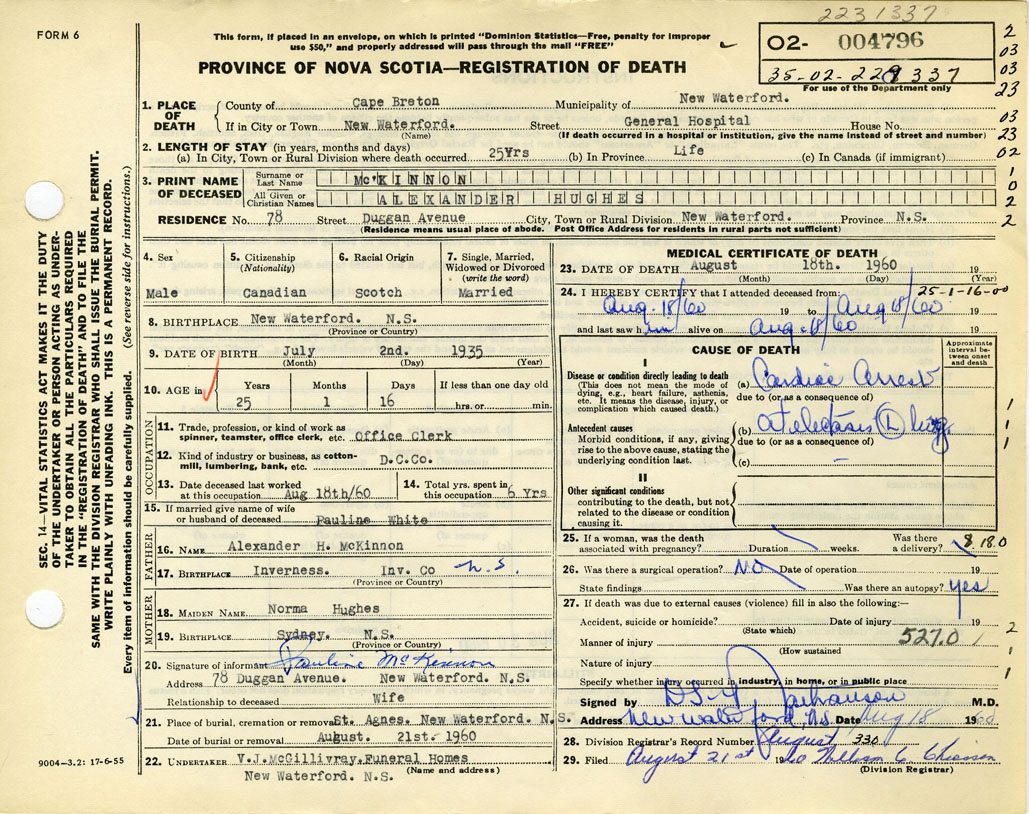 2231337
FORM 6
This form, if placed in an envelope, on which is printed "Dominion Statistics—Free, penalty for improper
use $50," and properly addressed will pass through the mail "FREE"
02- 004796
35-02-229337
For use of the Department only
PROVINCE OF NOVA SCOTIA—REGISTRATION OF DEATH
2
03
03
23
03
23
02
1
0
2
2
1. PLACE OF DEATH
County of Cape Breton Municipality of New Waterford.
If in City or Town New Waterford. Street General Hospital House No.
(Name) (If death occurred in a hospital or institution, give the name instead of street and number)
2. LENGTH OF STAY (in years, months and days)
(a) In City, Town or Rural Division where death occurred 25Yrs (b) In Province Life (c) In Canada (if immigrant)
3. PRINT NAME OF DECEASED
Surname or Last Name Mc'KINNON
All Given or Christian Names ALEXANDER HUGHES
RESIDENCE No. 78 Street Duggan Avenue City, Town or Rural Division New Waterford. Province N.S.
(Residence means usual place of abode. Post Office Address for residents in rural parts not sufficient)
4. Sex
Male
5. Citizenship (Nationality)
Canadian
6. Racial Origin
Scotch
7. Single, Married, Widowed or Divorced (write the word)
Married
8. BIRTHPLACE New Waterford. N.S.
(Province or Country)
9. DATE OF BIRTH July 2nd. 1935
(Month) (Day) (Year)
10. AGE in
Years Months Days If less than one day old
25 1 16 hrs. or min.
OCCUPATION
11. Trade, profession, or kind of work as
spinner, teamster, office clerk, etc. Office Clerk
12. Kind of industry or business, as cotton-
mill, lumbering, bank, etc. D.C.Co.
13. Date deceased last worked
at this occupation Aug 18th/60
14. Total yrs. spent in
this occupation 6 Yrs
15. If married give name of wife
or husband of deceased Pauline White
FATHER
16. NAME Alexander H. McKinnon
17. BIRTHPLACE Inverness. Inv. Co N.S.
(Province or Country)
MOTHER
18. MAIDEN NAME Norma Hughes
19. BIRTHPLACE Sydney. N.S.
(Province or Country)
20. Signature of informant Pauline McKinnon
Address 78 Duggan Avenue. New Waterford. N.S.
Relationship to deceased Wife
21. Place of burial, cremation or removal St. Agnes. New Waterford. N.S.
Date of burial or removal August. 21st. 1960
22. UNDERTAKER V.J.McGillivray.Funeral Homes
New Waterford. N.S. (Name and address)
MEDICAL CERTIFICATE OF DEATH
23. DATE OF DEATH August 18th. 1960 19
(Month) (Day) (Year)
25-1-16-00
24. I HEREBY CERTIFY that I attended deceased from
Aug. 18/60 19 to Aug 18/60 19
and last saw him alive on Aug 18/60 19
CAUSE OF DEATH
Approximate interval between onset and death
I
Disease or condition directly leading to death
(This does not mean the mode of
dying, e.g., heart failure, asthenia,
etc. It means the disease, injury, or
complication which caused death.)
(a) Cardiac Arrest
due to (or as a consequence of)
Antecedent causes
Morbid conditions, if any, giving
rise to the above cause, stating the
underlying condition last.
(b) Atelectasis L lung
due to (or as a consequence of)
(c) —
II
Other significant conditions
contributing to the death, but not
related to the disease or condition
causing it.
1
1
1
25. If a woman, was the death
associated with pregnancy? Duration weeks. Was there a delivery?
8 18.0
26. Was there a surgical operation? NO Date of operation 19
State findings Was there an autopsy? yes
27. If death was due to external causes (violence) fill in also the following:—
Accident, suicide or homicide? Date of injury 19
(State which)
Manner of injury 527.0
(How sustained)
Nature of injury
Specify whether injury occurred in industry, in home, or in public place
1
2
1
1
Signed by M.D.
Address New Waterford, N.S. Date Aug 18 1960
28. Division Registrar's Record Number 330
August
29. Filed August 21st 1960 William C Chisholm
(Division Registrar)
SEC. 14—VITAL STATISTICS ACT MAKES IT THE DUTY
OF THE UNDERTAKER OR PERSON ACTING AS UNDER-
TAKER TO OBTAIN ALL THE PARTICULARS REQUIRED
IN THE "REGISTRATION OF DEATH" AND TO FILE THE
SAME WITH THE DIVISION REGISTRAR WHO SHALL ISSUE THE BURIAL PERMIT.
WRITE PLAINLY WITH UNFADING INK. THIS IS A PERMANENT RECORD.
Every item of information should be carefully supplied. (See reverse side for instructions.)
9004—3.2: 17-6-55